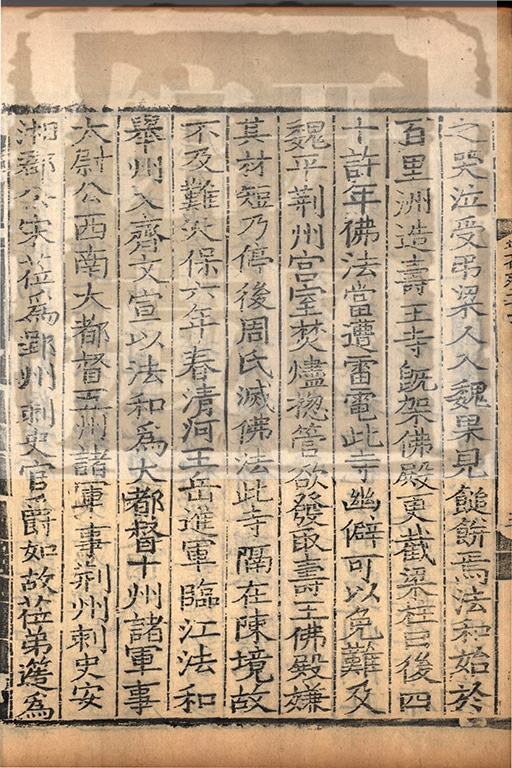 之哭泣受弔梁人入魏果見䭔餅焉法和始於
百里洲造壽王寺旣架佛殿更截梁柱曰後四
十許年佛法當遭雷電此寺幽僻可以免難及
魏平荆州宮室焚燼揔管欲發取壽王佛殿嫌
其材短乃停後周氏滅佛法此寺隔在陳境故
不及難天保六年春清河王岳進軍臨江法和
舉州入齊文宣以法和爲大都督十州諸軍事
太尉公西南大都督五州諸軍事荆州刺史安
湘郡公宋莅爲郢州刺史官爵如故莅弟簉爲